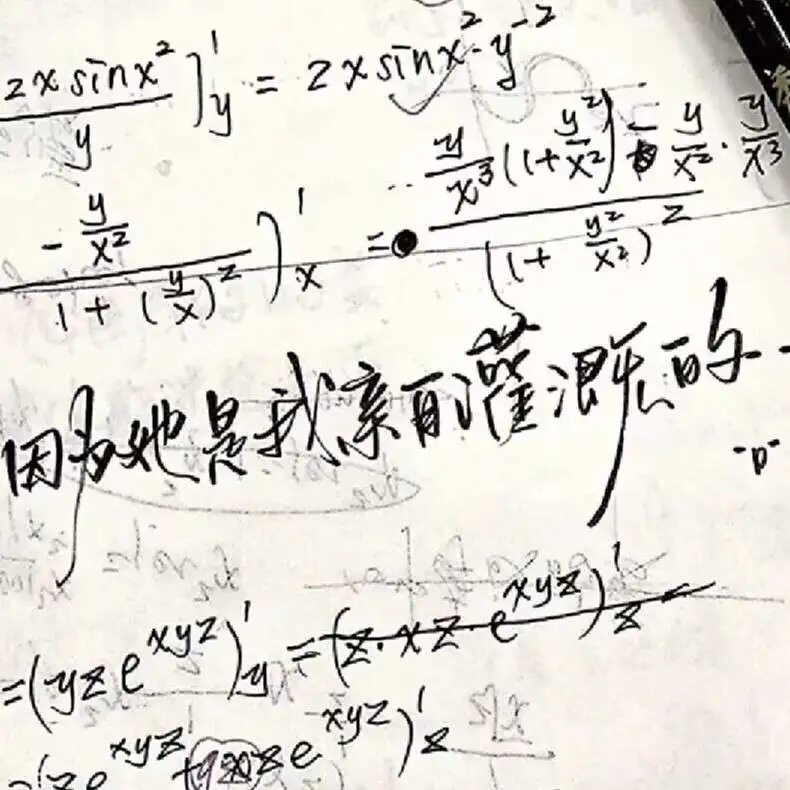 2x sinx² / y )'y = 2x sinx² · y⁻²
- y/x² / 1 + (y/x)² )'x = y/x³ (1 + y²/x²) - y/x² · y/x³ / (1 + y²/x²)²
因为她是我亲自灌溉的
= (yz e^xyz)'y = (z · xz · e^xyz)'z
e^xyz + xze^xyz)'z